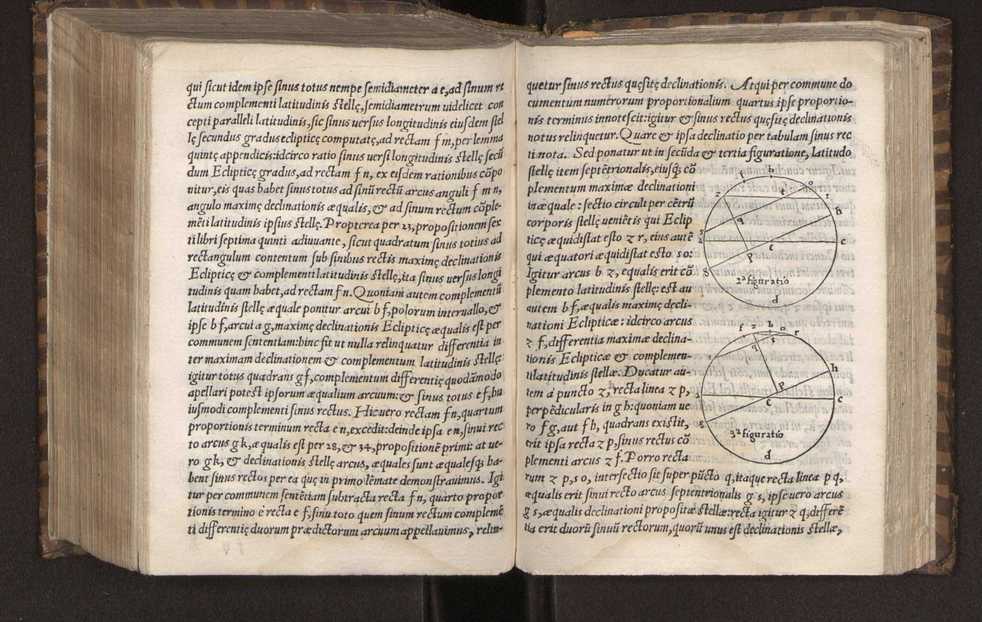 qui sicut idem ipse sinus totus nempe semidiameter a e, ad sinum re
ctum complementi latitudinis stellę, semidiametrum uidelicet con
cepti paralleli latitudinis, sic sinus uersus longitudinis eiusdem stel
lę secundus gradus eclipticę computatę, ad rectam f m, per lemma
quintę appendicis: idcirco ratio sinus uersi longitudinis stellę secū
dum Eclipticę gradus, ad rectam f n, ex eisdem rationibus cōpo
nitur, eis quas habet sinus totus ad sinū rectū arcus anguli f m n,
angulo maximę declinationis æqualis, & ad sinum rectum cōple-
mēti latitudinis ipsius stellę. Propterea per 23, propositionem sex
ti libri septima quinti adiuuante, sicut quadratum sinus totius ad
rectangulum contentum sub sinibus rectis maximę declinationis
Eclipticę & complementi latitudinis stellę, ita sinus uersus longi
tudinis quam habet, ad rectam f n. Quoniam autem complementū
latitudinis stellę æquale ponitur arcui b f, polorum interuallo, &
ipse b f, arcui a g, maximę declinationis Eclipticę æqualis est per
communem sententiam: hinc fit ut nulla relinquatur differentia in
ter maximam declinationem & complementum latitudinis stellę:
igitur totus quadrans g f, complementum differentię quodāmodo
apellari potest ipsorum æqualium arcuum: & sinus totus e f, hu
iusmodi complementi sinus rectus. Hic uero rectam f n, quartum
proportionis terminum recta e n, excedit: deinde ipsa e n, sinui rec
to arcus g k, æqualis est per 28, & 34, propositionē primi: at ue-
ro g k, & declinationis stellę arcus, æquales sunt æqualesq; ha-
bent sinus rectos per ea quę in primo lēmate demonstrauimus. Igi
tur per communem sentētiam subtracta recta f n, quarto propor
tionis termino è recta e f, sinu toto quem sinum rectum complemē
ti differentię duorum prædictorum arcuum appellauimus, relin-
quetur sinus rectus quęsitę declinationis. Atqui per commune do
cumentum numerorum proportionalium quartus ipse proportio-
nis terminus innotescit: igitur & sinus rectus quęsitę declinationis
notus relinquetur. Quare & ipsa declinatio per tabulam sinus rec
ti nota. Sed ponatur ut in secūda & tertia figuratione, latitudo
stellę item septētrionalis, eiusq; cō
plementum maximæ declinationi
inæquale: sectio circuli per cētrū
corporis stellę ueniētis qui Eclip
ticę æquidistat esto z r, eius autē
qui æquatori æquidistat esto s o:
Igitur arcus b z, equalis erit cō
plemento latitudinis stellę: est au
autem b f, æqualis maximę decli-
nationi Eclipticæ: idcirco arcus
z f, differentia maximæ declina-
tionis Eclipticæ & complemen-
ti latitudinis stellæ. Ducatur au-
tem à puncto z, recta linea z p,
perpēdicularis in g h: quoniam ue
ro f g, aut f h, quadrans existit,
erit ipsa recta z p, sinus rectus cō
plementi arcus z f. Porro recta-
rum z p, s o, intersectio sit super pūcto q, itaque recta linea p q,
æqualis erit sinui recto arcus septentrionalis g s, ipse uero arcus
g s, æqualis declinationi propositæ stellæ: recta igitur z q, differē
tia erit duorū sinuū rectorum, quorū unus est declinationis stellæ,
2ª figuratio
3ª figuratio